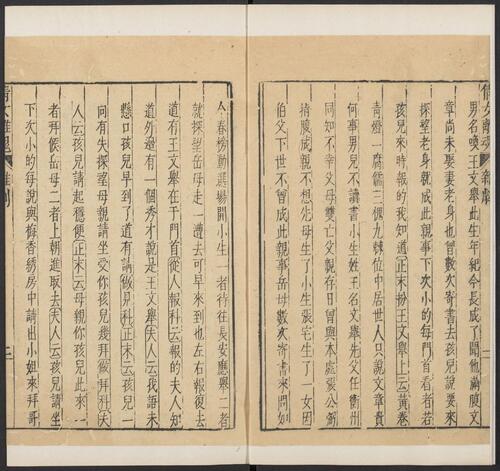 倩女離魂 雜劇 一
男名喚王文舉此生年紀今長成了聞他滿腹文
章尚未娶妻老身也曾數次寄書去孩兒說要來
探望老身就成此親事下次小的每門首看者若
孩兒來時報的我知道正末扮王文舉上云黃卷
青燈一腐儒三槐九棘位中居世人只說文章貴
何事男兒不讀書小生姓王名文舉先父任衡州
同知不幸父母雙亡父親存日曾與本處張公弼
指腹成親不想先母生了小生張宅生了一女因
伯父下世不曾成此親事岳母數次寄書來問如
今春榜動選場開小生一者待往長安應舉二者
就探望岳母走一遭去可早來到也左右報復去
道有王文舉在于門首從人報科云報的夫人知
道外邊有一個秀才說是王文舉夫人云我語未
懸口孩兒早到了道有請做見科正末云孩兒一
向有失探望母親請坐受你孩兒幾拜做拜科夫
人云孩兒請起穩便正末云母親你孩兒此來一
者拜候岳母二者上朝進取去夫人云孩兒請坐
下次小的每說與梅香綉房中請出小姐來拜哥
倩女離魂 雜劇 二